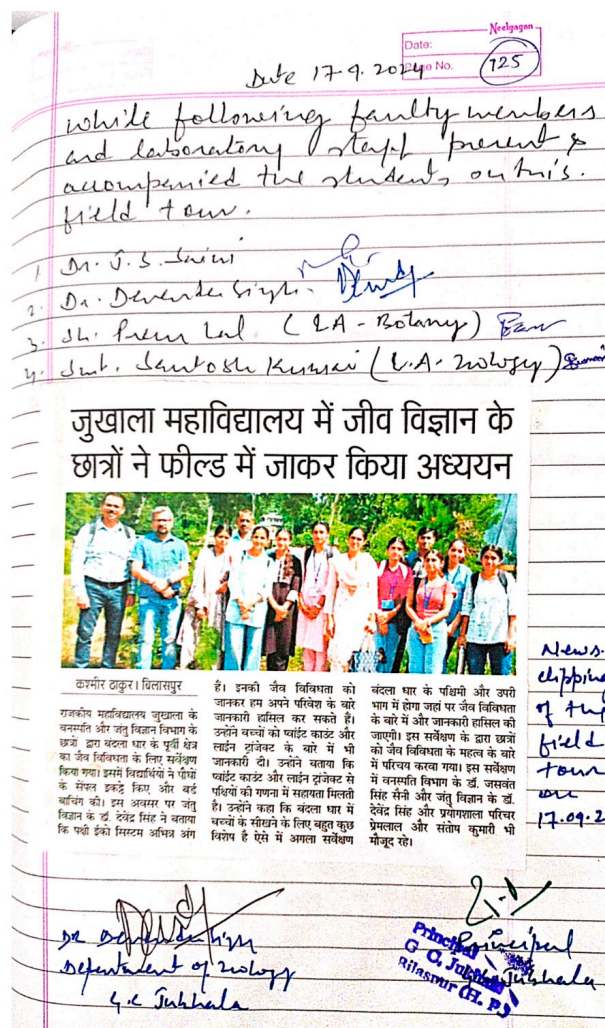 Neelgagan
Date:
Page No.
125
Date 17.9.2024
while following faulty members
and laboratory staff present &
accompanied the students on this.
field tour.
1 Dr. J. S. Saini
2. Dr. Devender Singh.
3. Sh. Prem Lal (LA - Botany)
4. Smt. Santosh Kumari (L.A - zoology)
जुखाला महाविद्यालय में जीव विज्ञान के
छात्रों ने फील्ड में जाकर किया अध्ययन
कश्मीर ठाकुर। बिलासपुर
राजकीय महाविद्यालय जुखाला के
वनस्पति और जंतु विज्ञान विभाग के
छात्रों द्वारा बंदला धार के पूर्वी क्षेत्र
का जैव विविधता के लिए सर्वेक्षण
किया गया। इसमें विद्यार्थियों ने पौधों
के सेंपल इकट्ठे किए और बर्ड
वाचिंग की। इस अवसर पर जंतु
विज्ञान के डॉ. देवेंद्र सिंह ने बताया
कि पक्षी ईको सिस्टम अभिन्न अंग
है। इनकी जैव विविधता को
जानकर हम अपने परिवेश के बारे
जानकारी हासिल कर सकते हैं।
उन्होंने बच्चों को प्वांईट काउंट और
लाईन ट्रांजेक्ट के बारे में भी
जानकारी दी। उन्होंने बताया कि
प्वांईट काउंट और लाईन ट्रांजेक्ट से
पक्षियों की गणना में सहायता मिलती
है। उन्होंने कहा कि बंदला धार में
बच्चों के सीखने के लिए बहुत कुछ
विशेष है ऐसे में अगला सर्वेक्षण
बंदला धार के पश्चिमी और उपरी
भाग में होगा जहां पर जैव विविधता
के बारे में और जानकारी हासिल की
जाएगी। इस सर्वेक्षण के द्वारा छात्रों
को जैव विविधता के महत्व के बारे
में परिचय करवा गया। इस सर्वेक्षण
में वनस्पति विभाग के डॉ. जसवंत
सिंह सैनी और जंतु विज्ञान के डॉ.
देवेंद्र सिंह और प्रयोगशाला परिचर
प्रेमलाल और संतोष कुमारी भी
मौजूद रहे।
News.
clipping
of this
field
tour
on
17.09.2
Dr Devender Singh
Department of zoology
G.C Jukhala
Principal
G.C. Jukhala
Principal
G. C. Jukhala
Bilaspur (H. P.)